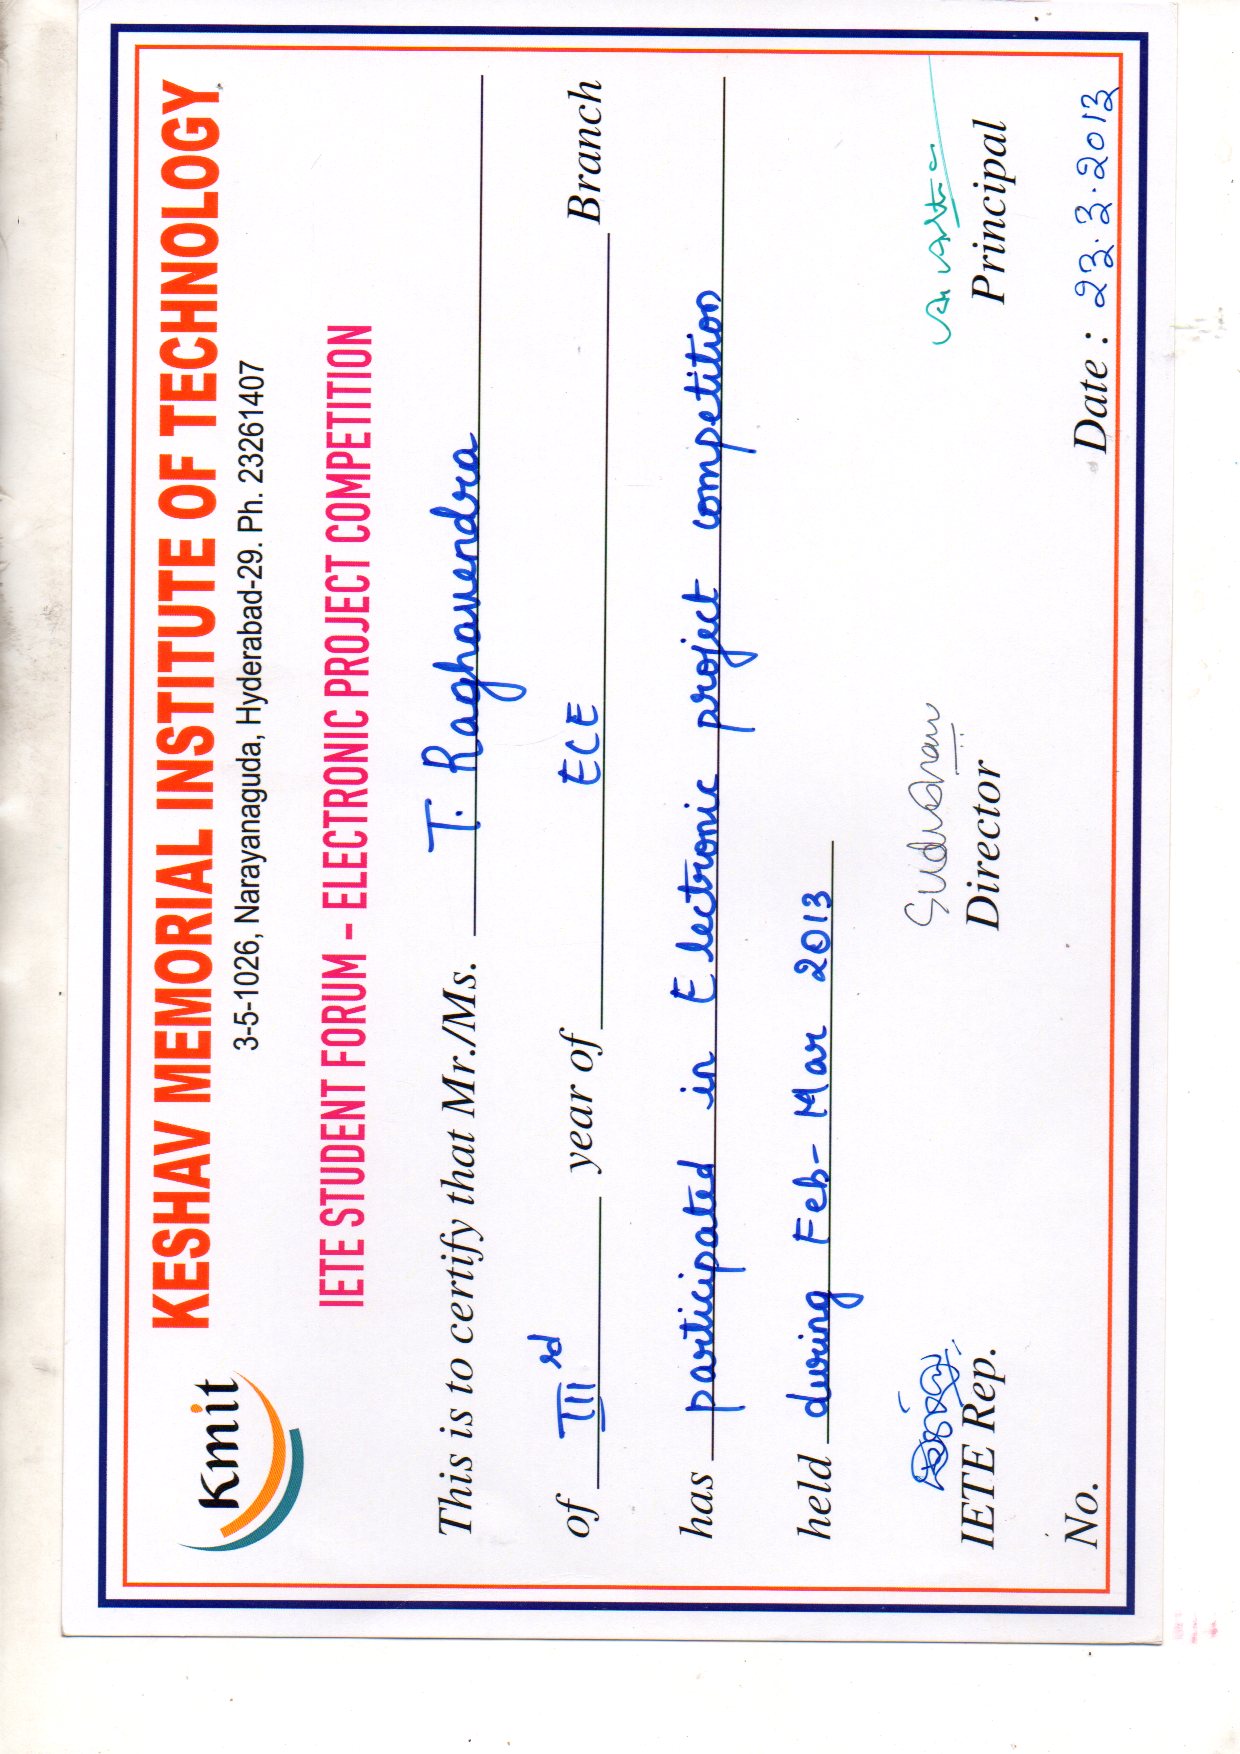 Kmit
KESHAV MEMORIAL INSTITUTE OF TECHNOLOGY
3-5-1026, Narayanaguda, Hyderabad-29. Ph. 23261407
IETE STUDENT FORUM – ELECTRONIC PROJECT COMPETITION
This is to certify that Mr./Ms. T. Raghavendra
of IIIrd year of ECE Branch
has participated in Electronic project competition
held during Feb-Mar 2013
Sudarshan
IETE Rep. Director Principal
No. Date : 23.3.2013